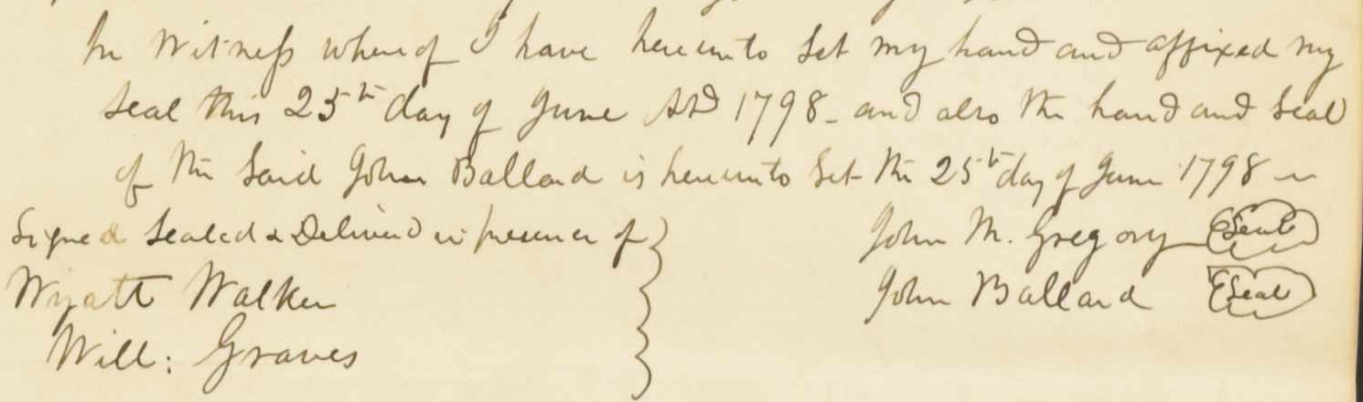 In Witness whereof I have hereunto Set my hand and affixed my
Seal this 25th day of June AD 1798 - and also the hand and Seal
of the Said John Ballard is hereunto Set the 25th day of June 1798 -
Signed Sealed & Delivered in presence of } John M. Gregory (Seal)
Wyatt Walker John Ballard (Seal)
Will: Graves